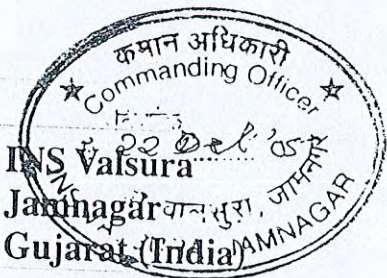 कमान अधिकारी
Commanding Officer
22 '05
INS Valsura
Jamnagar
Gujarat (India)
वालसुरा, जामनगर
JAMNAGAR